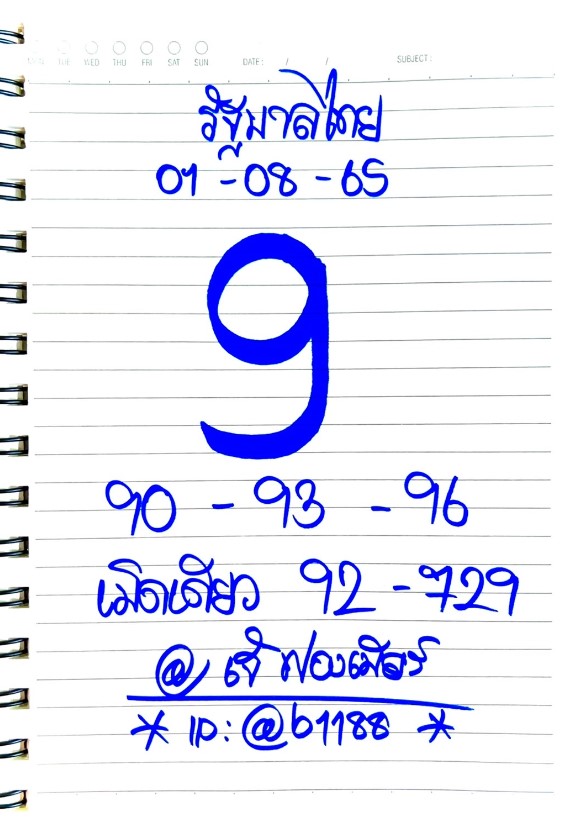 MON TUE WED THU FRI SAT SUN DATE : / / SUBJECT :
รัฐบาลไทย
01-08-65
9
90 - 93 - 96
เม็ดเดียว 92 - 729
@ เจ๊ฟองเบียร์
* ID: @b1188 *